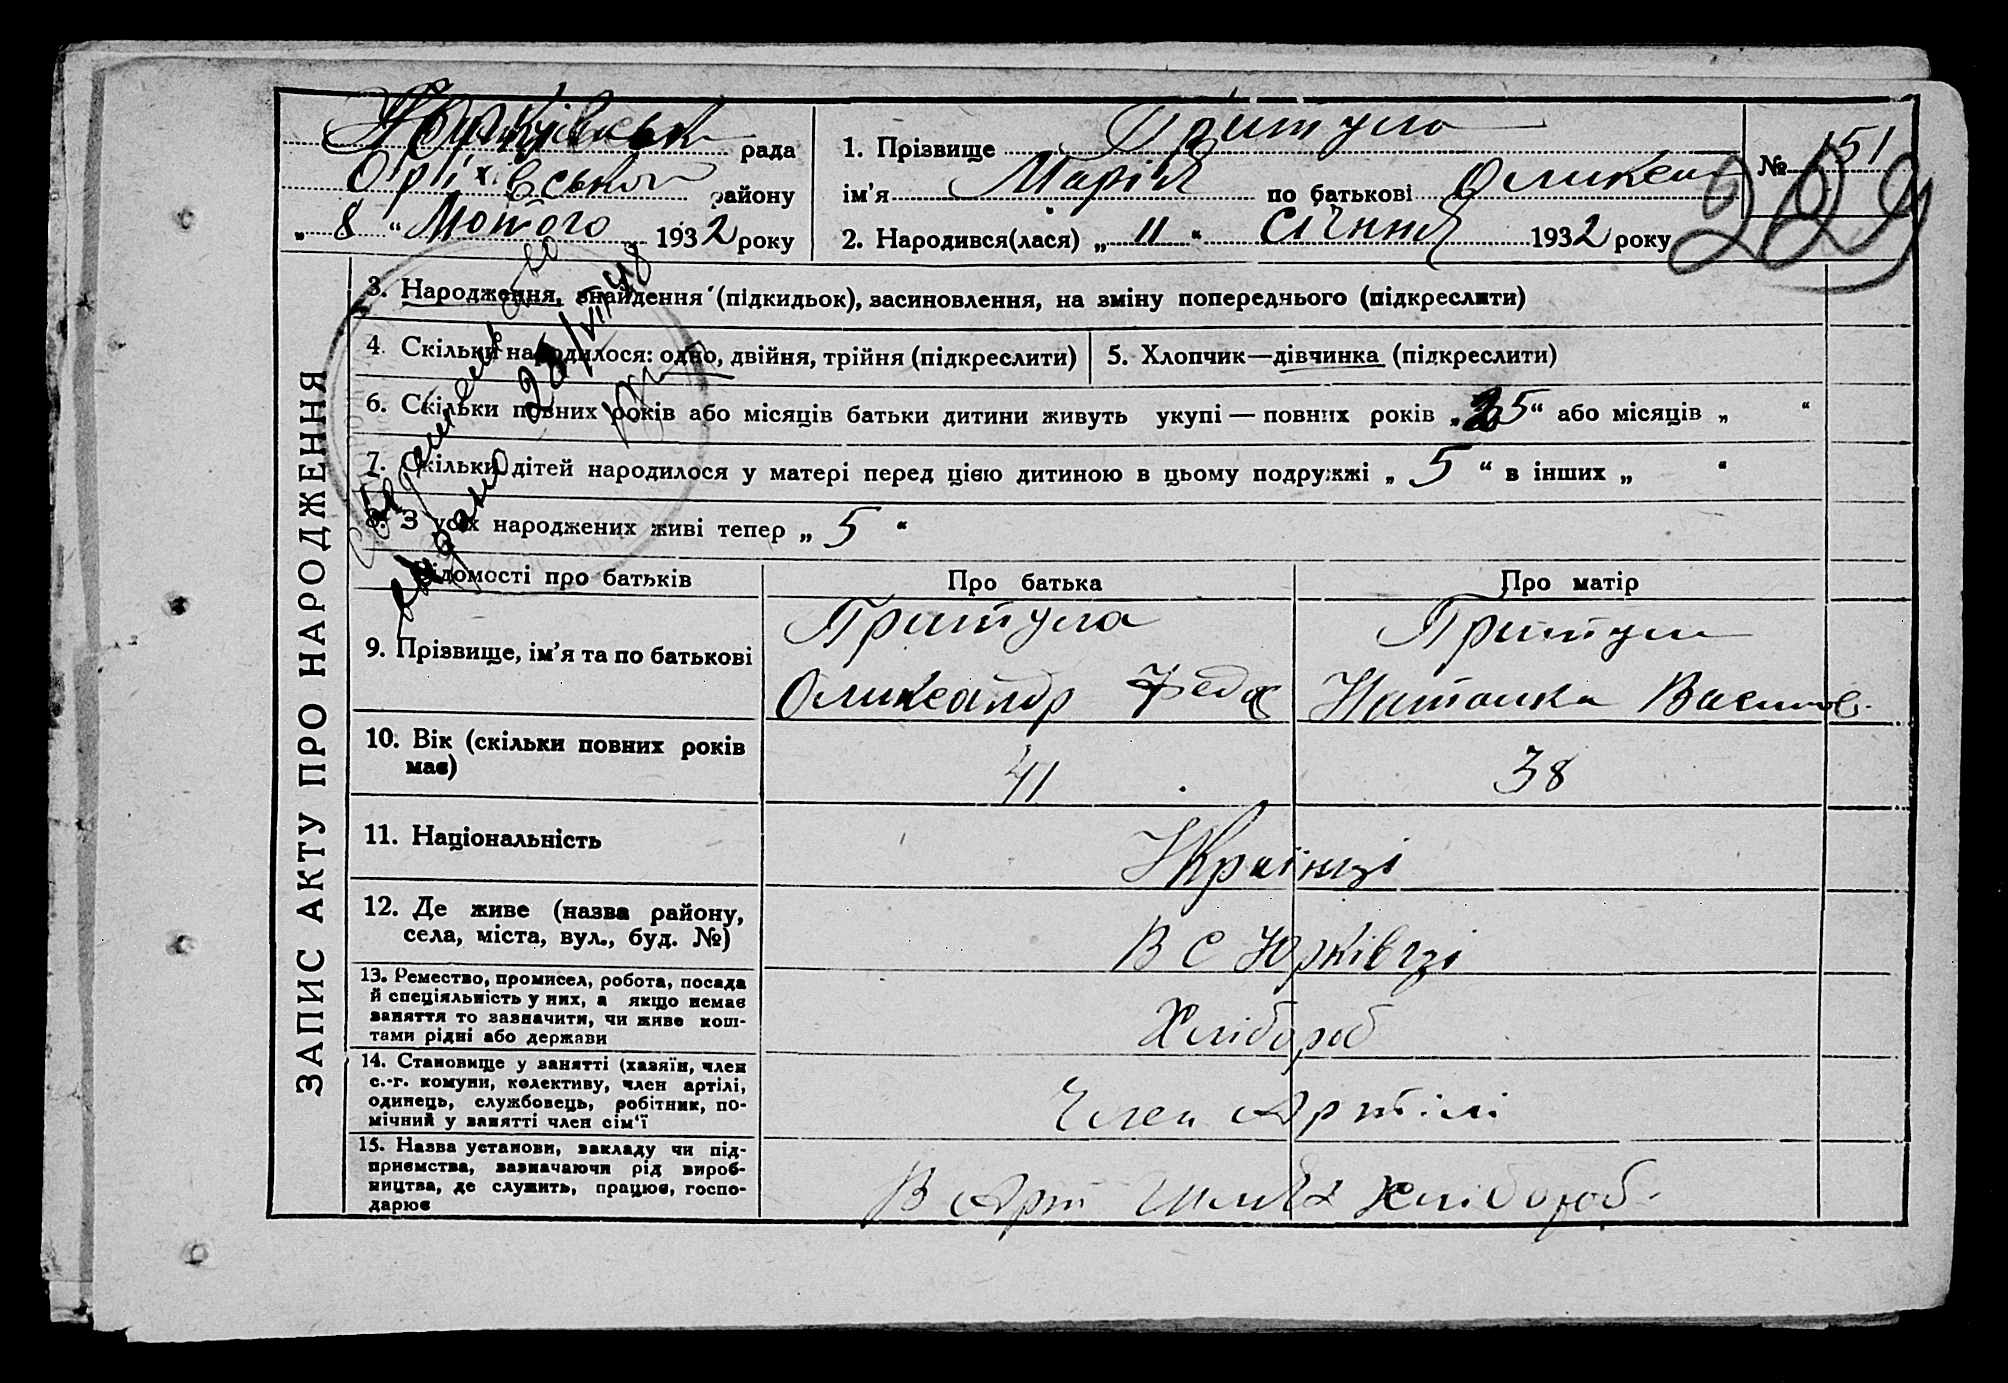 Юрківськ рада
Оріхівського району
„ 8 “ Лютого 1932 року
1. Прізвище Притула
ім’я Марія по батькові Оликсан
2. Народився(лася) „ 11 “ січння 1932 року
№ 151
229
ЗАПИС АКТУ ПРО НАРОДЖЕННЯ
3. Народження, знайдення (підкидьок), засиновлення, на зміну попереднього (підкреслити)
4. Скільки народилося: одно, двійня, трійня (підкреслити)
5. Хлопчик—дівчинка (підкреслити)
6. Скільки повних років або місяців батьки дитини живуть укупі — повних років „ 25 “ або місяців „ “
7. Скільки дітей народилося у матері перед цією дитиною в цьому подружжі „ 5 “ в інших „ “
8. З усіх народжених живі тепер „ 5 “
25/VII 48
Відомості про батьків
Про батька
Про матір
9. Прізвище, ім’я та по батькові
Притула
Оликсандр Федор
Притула
Наталка Васильов.
10. Вік (скільки повних років
має)
41
38
11. Національність
Українці
12. Де живе (назва району,
села, міста, вул., буд. №)
В с Юрківці
13. Ремество, промисел, робота, посада
й спеціяльність у них, а якщо немає
заняття то зазначити, чи живе кош-
тами рідні або держави
Хлібороб
14. Становище у занятті (хазяїн, член
с.-г. комуни, колективу, член артілі,
одинець, службовець, робітник, по-
мічний у занятті член сім‘ї
Член Артілі
15. Назва установи, закладу чи під-
приємства, зазначаючи рід вироб-
ництва, де служить, працює, госпо-
дарює
В Арт Шлях Хлібороб